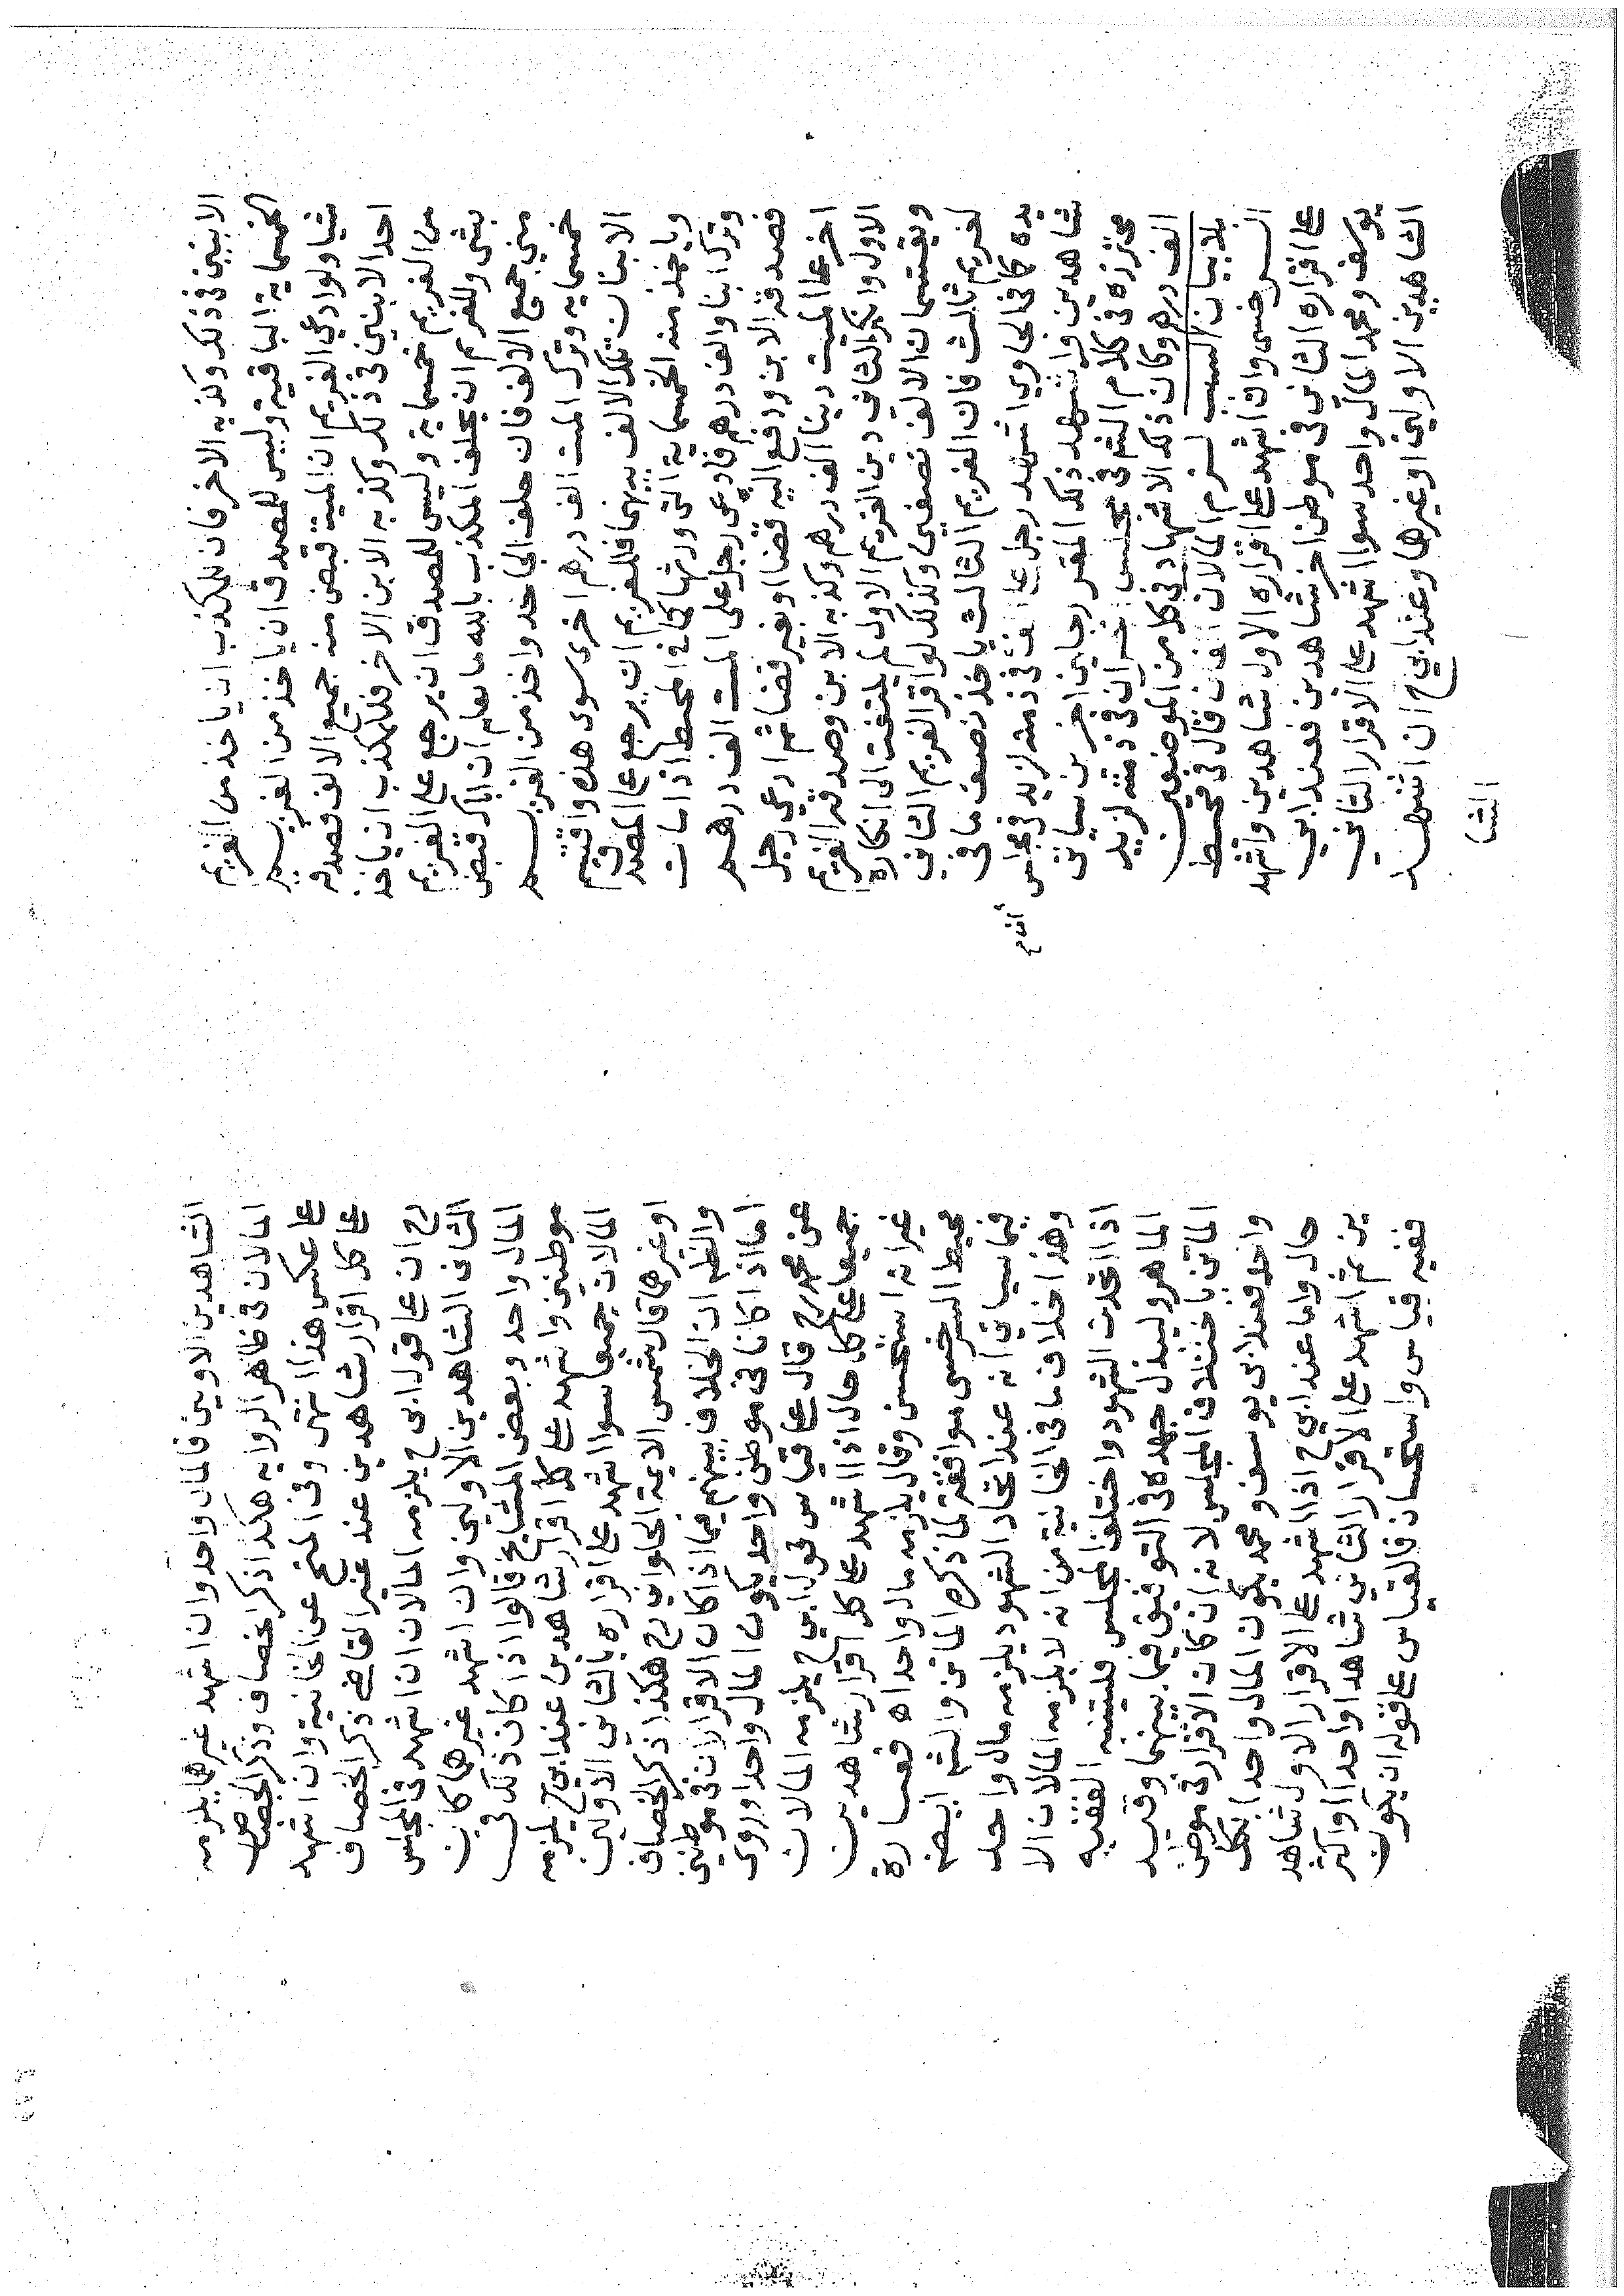 الابنين فى ذلك وكذبه الاخر فان للمكذب ان ياخذ من الغريم
الخمسماية الباقية وليس للمصدق ان ياخذ من الغريم
شيا ولو ادعى الغريم ان الميت قبض منه جميع الالف فصدقه
احد الابنين فى ذلك وكذبه الابن الاخر فللمكذب ان ياخذ
من الغريم خمسماية وليس للمصدق ان يرجع على الغريم
بشى وللغريم ان يحلف المكذب بالله ما يعلم ان اباك قبض
منى جميع الالف فان حلف الجاحد واخذ من الغريم
خمسمايه وترك الميت الف درهم اخرى سوى هذه واقتسم
الابنان تلك الالف بينهما فللغريم ان يرجع على المصدق
وياخذ منه الخمسماية التى ورثها كما فى المحيط اذا مات
وترك ابنا والف درهم فادعى رجل على الميت الف درهم
فصدقه الابن ودفع اليه بقضا او بغير قضا ثم ادعى رجل
اخر على الميت دينا الف درهم وكذبه الابن وصدقه الغريم
الاول وانكر الثانى دين الغريم الاول لم يلتفت الى انكاره
ويقتسمان الالف نصفين وكذلك لو اقر الغريم الثانى
لغريم ثالث فان الغريم الثالث ياخذ نصف ما فى
يده كما فى الحاوى اشهد رجل على الف فى ذمته لزيد فى مجلس
شاهدين واشهد ذلك المقر رجلين اخرين سياتى
محترزه فى كلام الشم فى مجلس اخر ان فى ذمته لزيد
الف درهم وكان ذلك الاشهاد فى كل من الموضعين
بلا بيان السبب لزم المالان الفان قال فى محيط
السرخسى وان اشهد على اقراره الاول شاهدين واشهد
على اقراره الثانى فى موطن اخر شاهدين فعند ابى
يوسف ومحمد المال واحد سوا اشهد على الاقرار الثانى
الشاهدين الاولين او غيرها وعند ابى ح ان اشهد
الشا
الشاهدين الاولين فالمال واحد وان اشهد غيرهما يلزمه
المالان فى ظاهر الروايه هكذا ذكر الخصاف وذكر الجصاص
على عكس هذا انتهى وفى المنح عن الخانية وان اشهد
على كل اقرار شاهدين عند غير القاضى ذكر الخصاف
رح ان على قول ابى ح يلزمه المالان ان اشهد فى المجلس
الثانى الشاهدين الاولين وان اشهد غيرهما كان
المال واحد وبعض المشايخ قالوا اذا كان ذلك فى
موطنين واشهد على كل اقرار شاهدين عند ابى ح يلزمه
المالان جميعا سوا اشهد على اقراره بالثانى الاولين
او غيرهما قال شمس الايمة الحلوانى رح هكذا ذكر الخصاف
والظم ان الخلاف بينهم فيما اذا كان الاقراران فى موطنين
اما اذا كانا فى موطن واحد يكون المال واحدا وروى
عن محمد رح قال على قياس قول ابى ح يلزمه المالان
جميعا على كل حال اذا اشهد على كل اقرار شاهدين
غير انه استحسن وقال يلزمه مال واحد اه فعبارة
محيط السرخسى موافقة لما ذكره الماتن والشم ايضا
فيما سياتى انه عند اتحاد الشهود يلزمه مال واحد
وهذا خلاف ما فى الخانية من انه لا يلزمه المالان الا
اذا اتحدت الشهود واختلف المجلس فليتنبه الفقيه
الماهر وليبذل جهده فى التوفيق فيما بينهما وقيد
الماتن باختلاف المجلس لانه ان كان الاقرار فى موطن
واحد فعند ابى يوسف ومحمد يكون المال واحدا بكل
حال واما عند ابى ح اذا اشهد على الاقرار الاول شاهد
ين ثم اشهد على الاقرار الثانى شاهدا واحدا او اكثر
ففيه قياس واستحسان فالقياس على قوله ان يكون